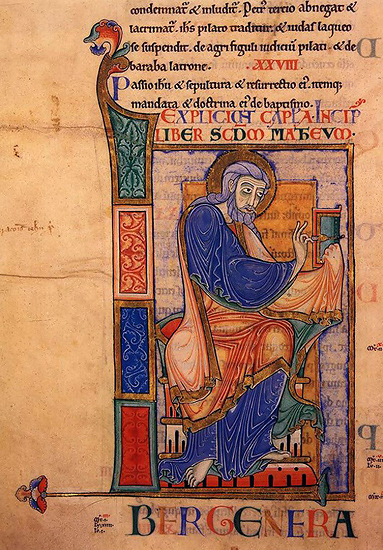 condemnat̄ & inludit̄. Petꝰ tercio abnegat &
lacrimat̄. ih̄s pilato tradit̄ & iudas laqueo
se suspendit. de agri figuli iudicii pilati & de
baraba latrone. XXVIII.
Passio ih̄u & sepultura & resurrectio eiꝰ.
mandata & doctrina eiꝰ de baptismo.
EXPLICIUNT CAP̄LA. INCIP̄
LIBER SC̄DM. MATEVM.
BER GENERA